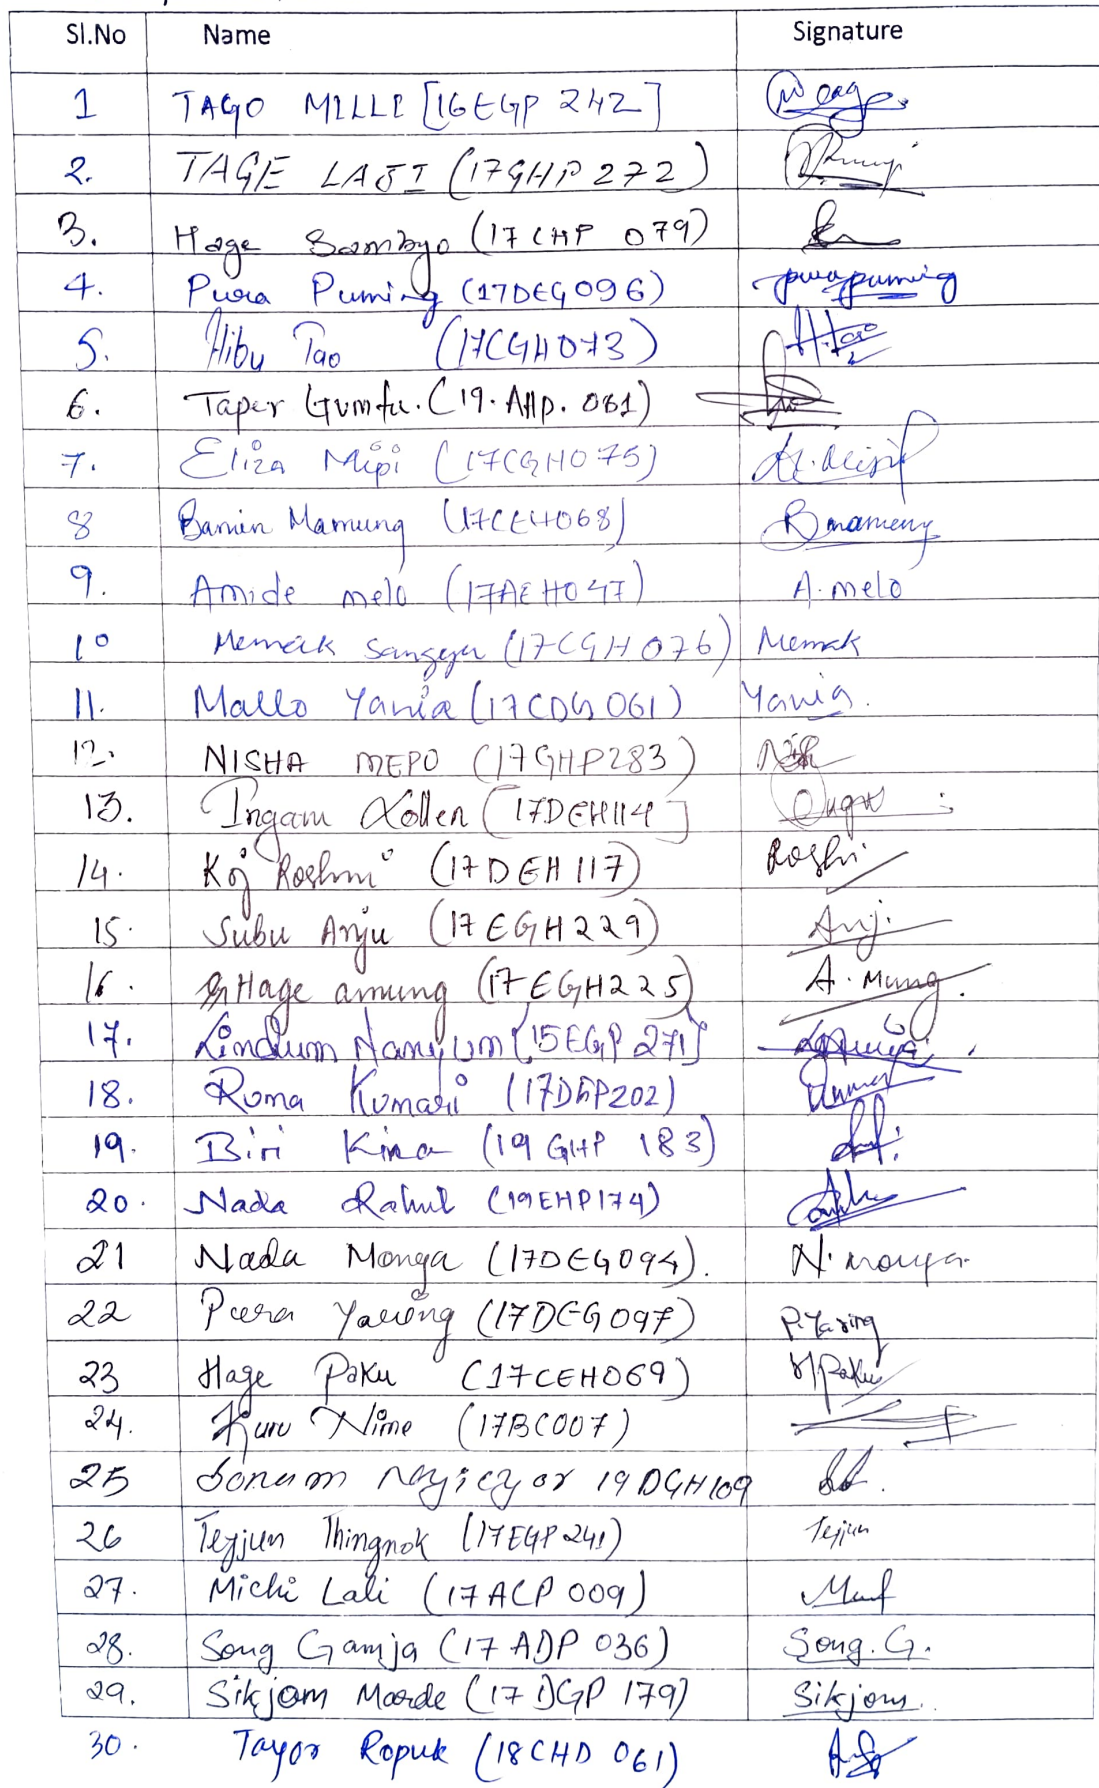 Sl.No Name Signature
1 TAGO MILLI [16EGP 242]
2. TAGE LAJI (17GHP 272)
3. Hage Sambyo (17CHP 079)
4. Pura Puming (17DEG096) purapuming
5. Hibu Tao (17CGH073) H.Tao
6. Taper Gumfu. (19.AHp.061)
7. Eliza Mipi (17CGH075)
8 Bamin Mamung (17CEH068) Bmamung
9. Amide melo (17AEH047) A.melo
10 Memak Sangeya (17CGH076) Memak
11. Mallo Yania (17CDG061) Yania.
12. NISHA MEPO (17GHP283)
13. Ingam Lollen [17DEH114]
14. Koj Roshni (17DEH117) Roshni
15. Subu Anju (17EGH229) Anj.
16. Hage amung (17EGH225) A.Mung.
17. Lindum Namyum [15EGP271]
18. Roma Kumari (17DEP202)
19. Biri Kina (19GHP 183)
20. Nada Rahul (19EHP174)
21 Nada Monya (17DEG094). N.monya.
22 Pura Yaring (17DEG097) P.Yaring
23 Hage Paku (17CEH069) H/Paku
24. Kuru Nime (17BC007)
25 Sonam 19DGH109
26 Tejjun Thingnok (17EGP241) Tejjun
27. Michi Lali (17ACP 009)
28. Song Gamja (17ADP 036) Song.G.
29. Sikjam Maade (17DGP 179) Sikjam.
30. Tayor Ropuk (18CHD 061)